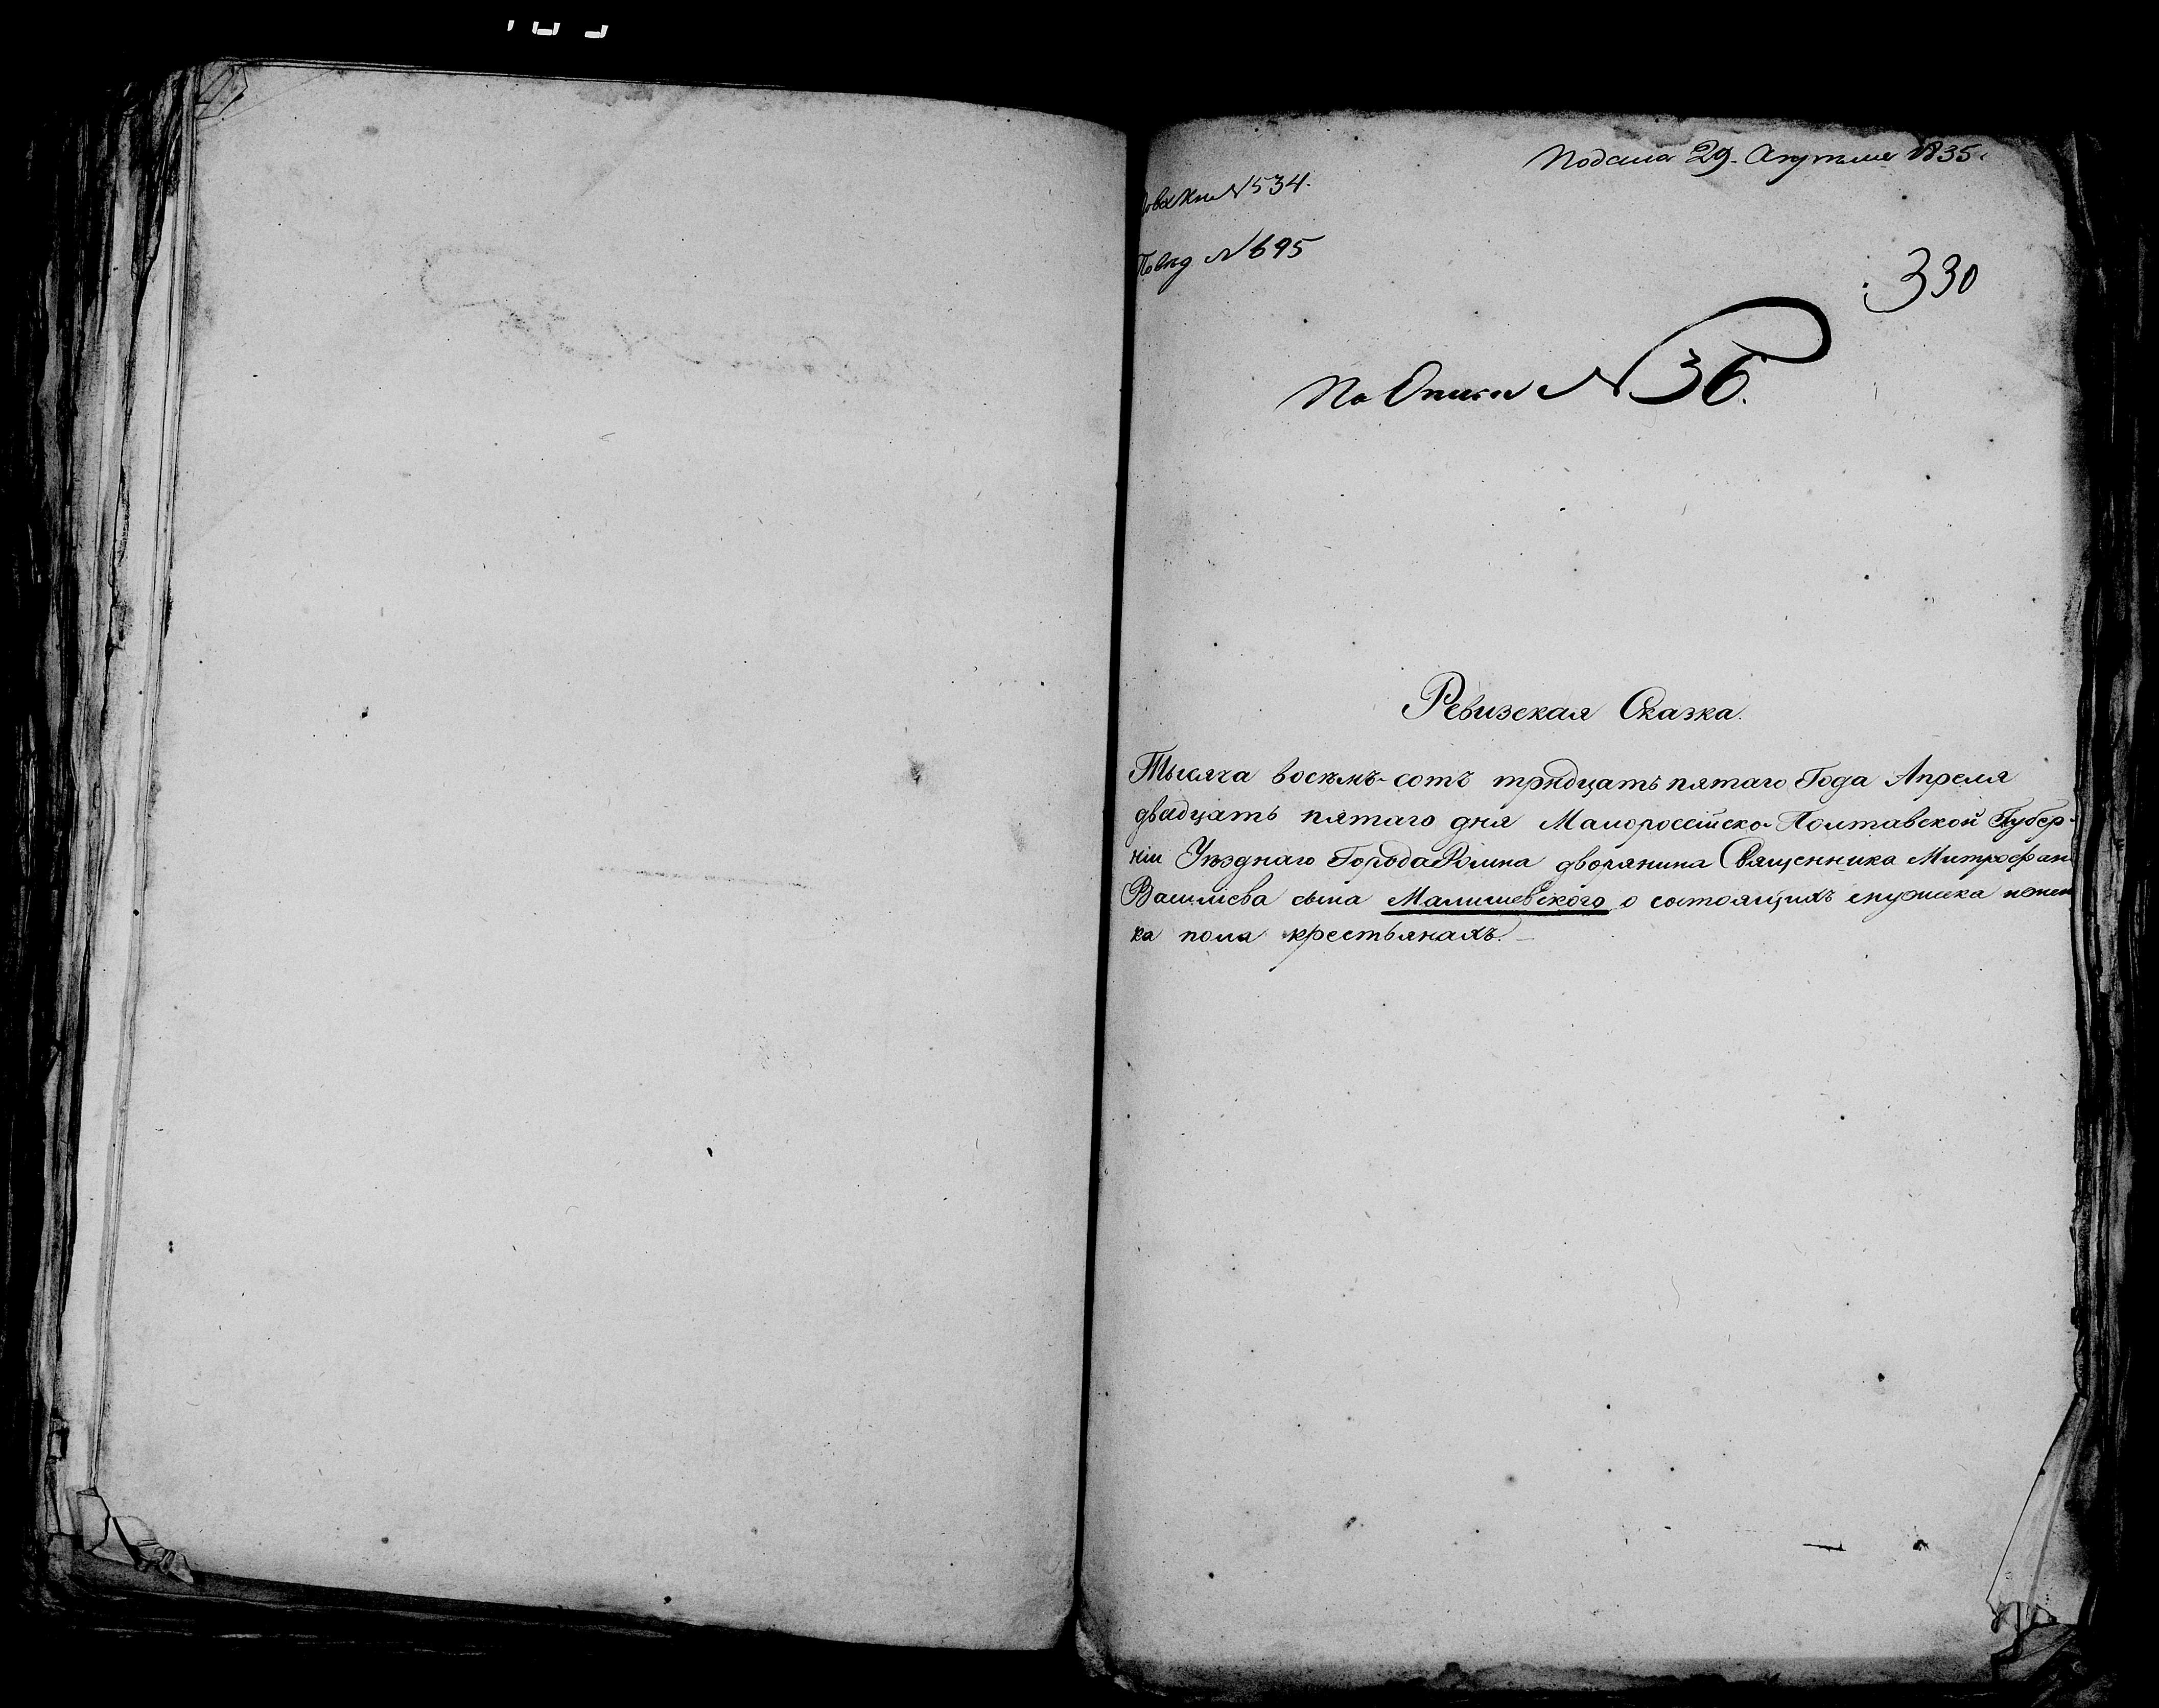 Подана 29. Апреля 1835.
N 534.
N 695
330
По Описи N 36.
Ревизская Сказка.
Тысяча восемь-сотъ тридцать пятаго Года Апреля
двадцать пятаго дня Малороссійско-Полтавской Губер-
ніи Уезднаго Города Ромна дворянина Священника Митрофан
Василіева сына Малишевского о состоящихъ мужеска и женс
ка пола крестьянахъ.